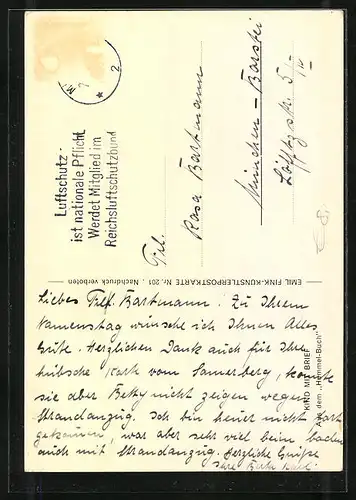 Luftschutz
ist nationale Pflicht
Werdet Mitglied im
Reichsluftschutzbund
Frl.
Rosa Bartmann
München – Borstei
Löfftzstr. 5/IV
EMIL FINK-KÜNSTLERPOSTKARTE Nr. 201 . Nachdruck verboten
KIND MIT BRIEF
Aus dem „Hummel-Buch"
Liebes Frl. Bartmann. Zu Ihrem
Namenstag wünsche ich Ihnen Alles
Gute. Herzlichen Dank auch für Ihre
hübsche Karte vom Samerberg, konnte
sie aber Betty nicht zeigen wegen
Strandanzug. Ich bin heuer nicht fort
gekommen, war aber sehr viel beim baden
auch mit Strandanzug. Herzliche Grüße
Ihre